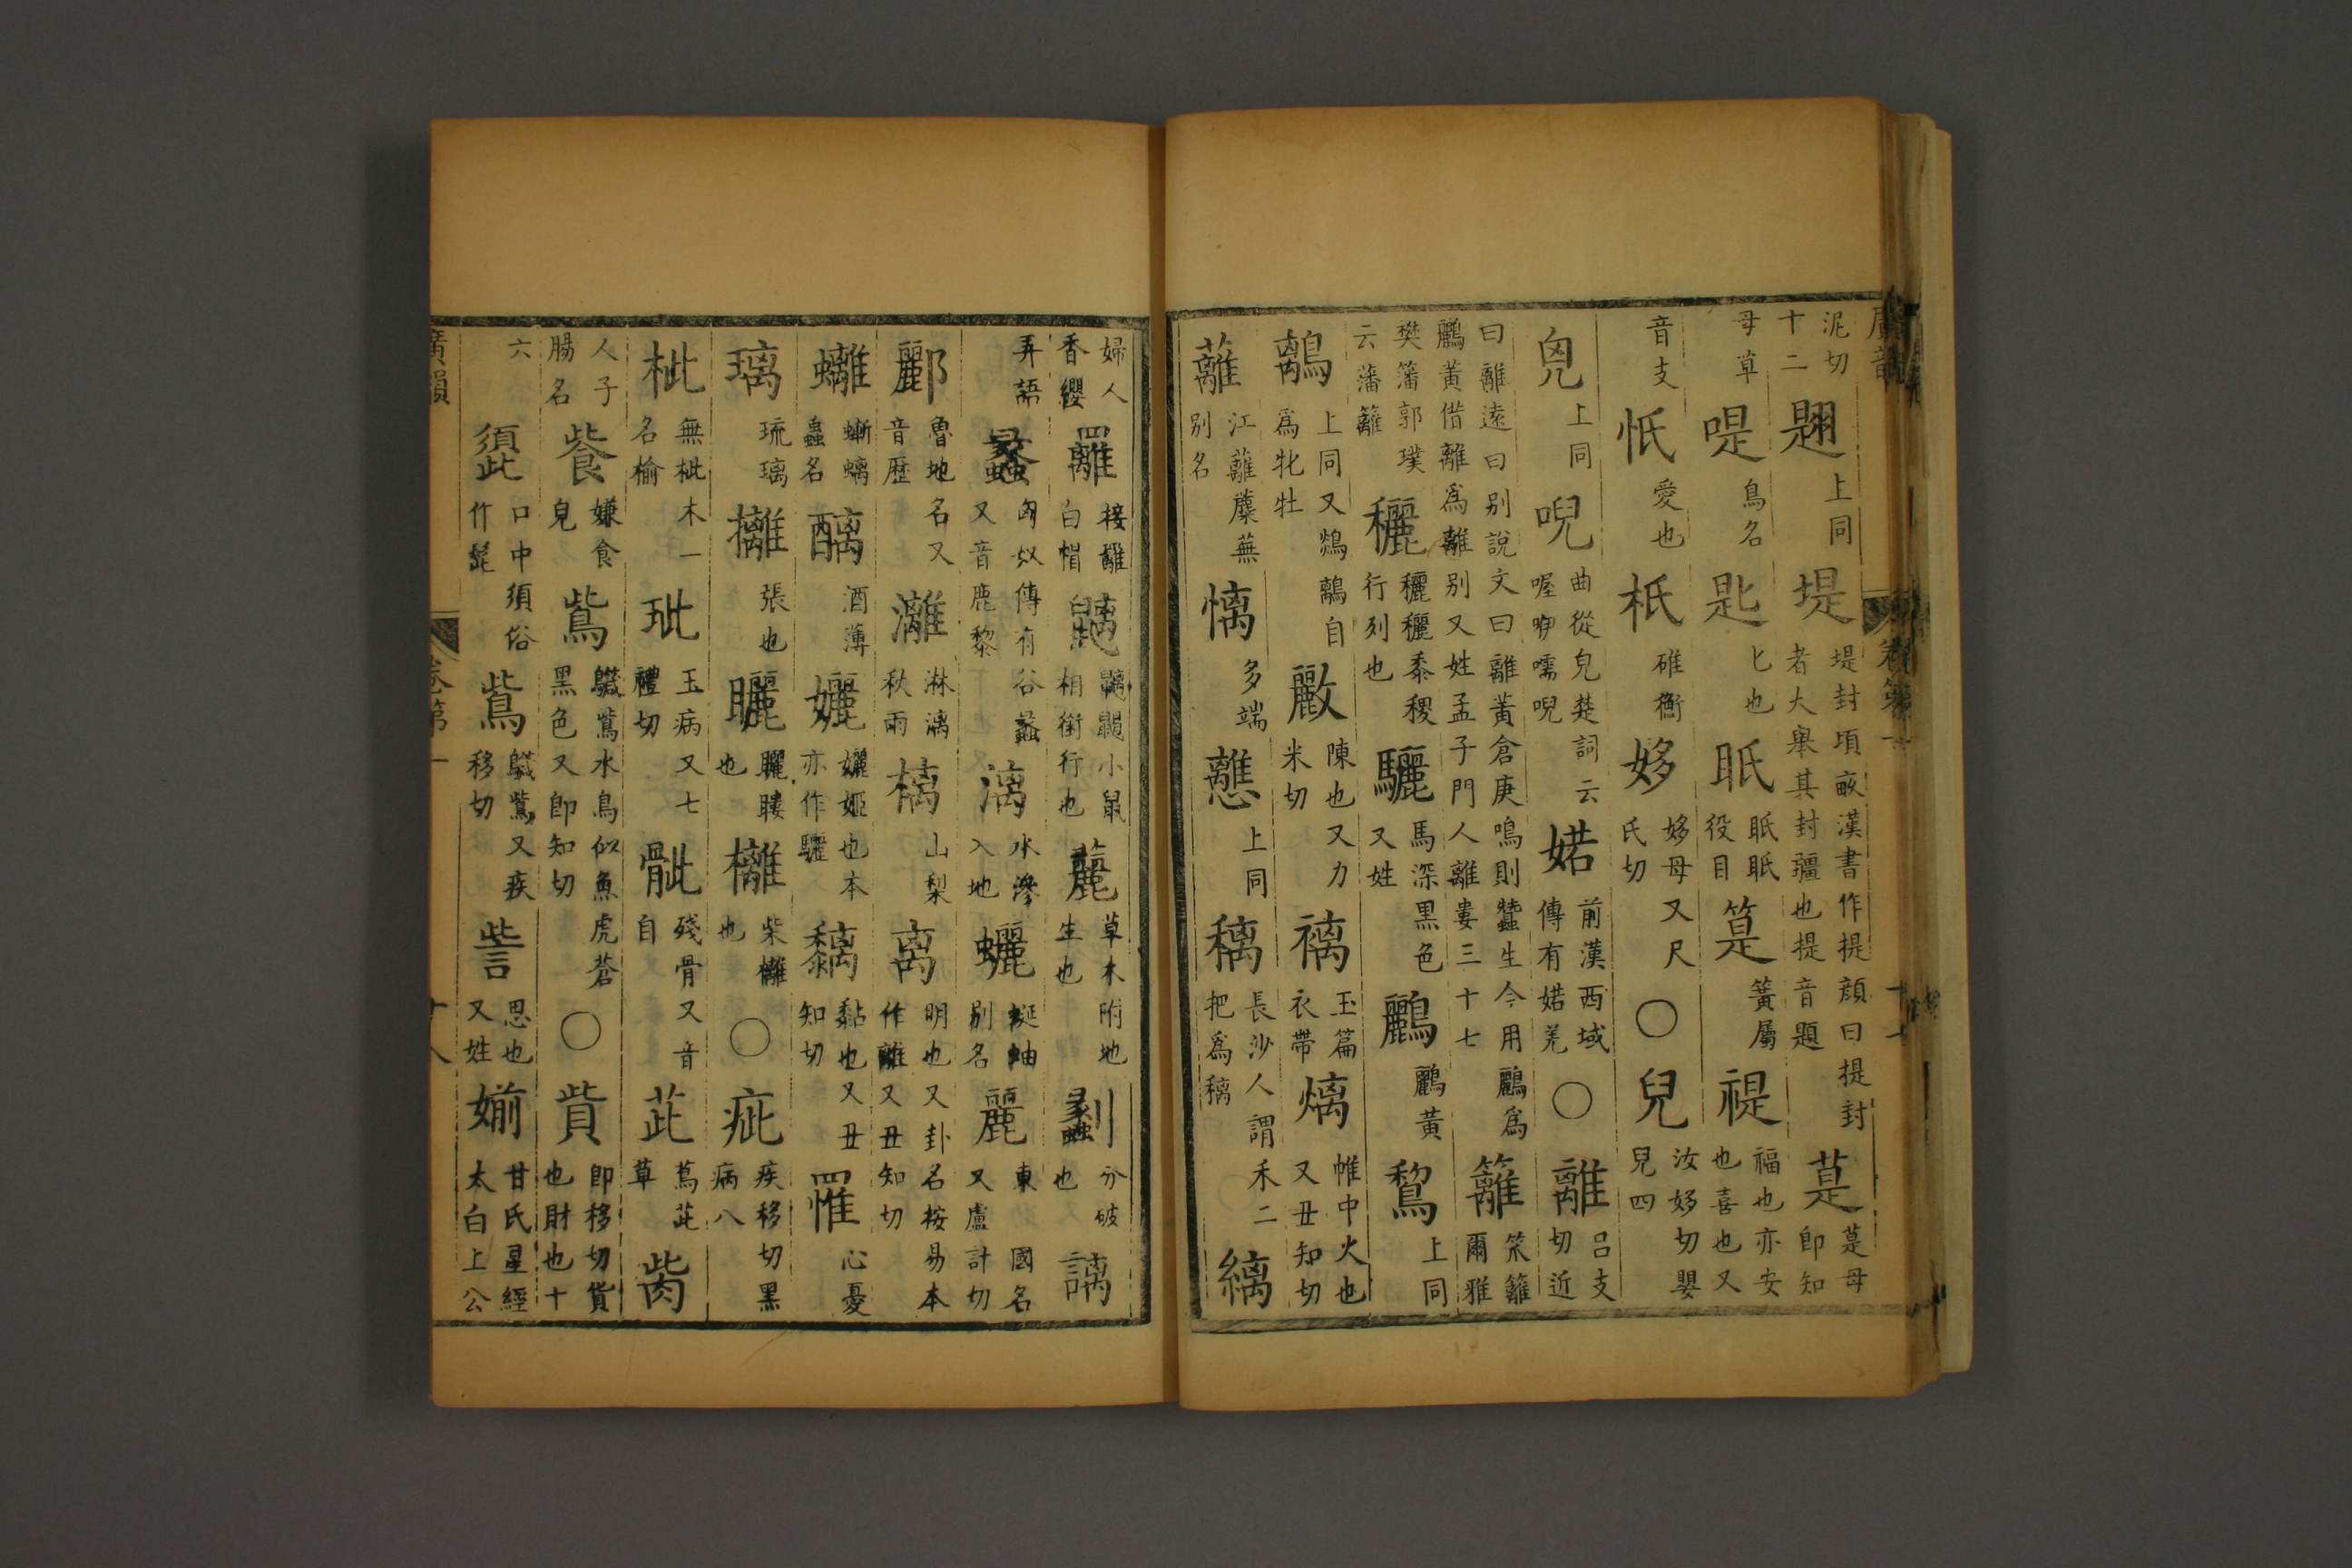 廣韻 卷第一
泥切十二 翅 上同 堤 堤封頃畝漢書作提顔曰提封者大舉其封疆也提音題 萛 萛母即知
母草 啼 鳥名 匙 匕也 眂 眂眂役目 筻 簧屬 禔 福也亦安也喜也又
音支 忯 愛也 衹 碓衡 姼 姼母又尺氏切 〇 兒 汝移切嬰兒四
唲 上同 唲 曲從皃楚詞云喔咿嚅唲 婼 前漢西域傳有婼羌 〇 離 吕支切近
曰離逺曰别說文曰離黃倉庚鳴則蠶生今用鸝爲鸝黃借離爲離别又姓孟子門人離婁三十七 籬 笊籬爾雅
樊籓郭璞云藩籬 穲 穲穲黍稷行列也 驪 馬深黑色又姓 鸝 鸝黃 鵹 上同
鷅 上同又鵁鷅自爲牝牡 𢿛 陳也又力米切 褵 玉篇衣帶 熪 帷中火也又丑知切
蘺 江蘺蘪蕪别名 㒿 多端 𢥗 上同 穲 長沙人謂禾二把爲穲 縭
婦人香纓 䍦 接䍦白帽 𪕮 𪕮𪖂小鼠相銜行也 䕻 草木附地生也 劙 分破也 謧
弄語 蠡 匈奴傳有谷蠡又音鹿黎 漓 水滲入地 蠣 蜒蚰别名 麗 東夷國名又盧計切
酈 魯地名又音歷 灕 淋漓秋雨 樆 山梨 离 明也又卦名桉易本作離又丑知切
蠄 蜥螭蟲名 醨 酒薄 孋 孋姬也本亦作驪 黐 黏也又丑知切 罹 心憂
璃 琉璃 攡 張也 矖 矖瞜也 㰚 柴㰚也 〇 疵 疾移切黑病八
枇 無枇木一名榆 玼 玉病又七禮切 骴 殘骨又音自 茈 蔦茈草 胔
人子腸名 飺 嫌食皃 鴜 鸃鴜水鳥似魚虎蒼黑色又即知切 〇 貲 即移切貨也財也十
六 頾 口中須俗作髭 鴜 鸃鴜又疾移切 訾 思也又姓 媊 甘氏星經太白上公
廣韻 卷第一 十八